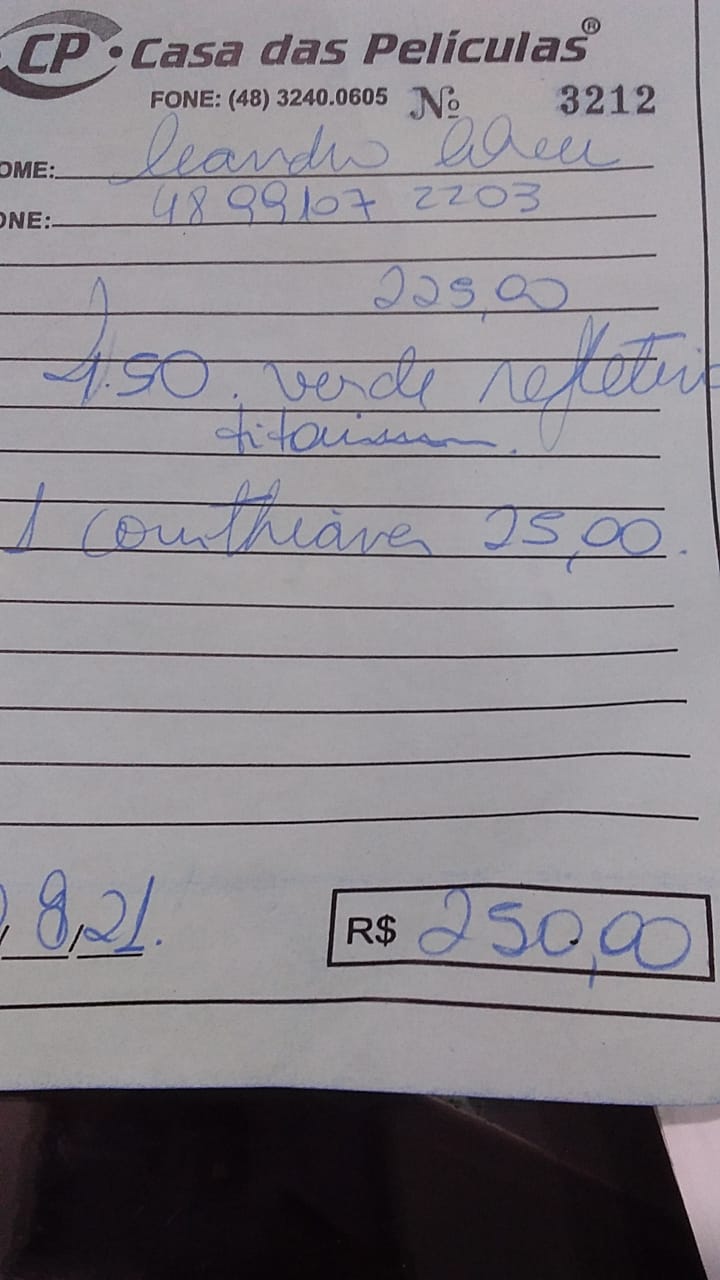 CP • Casa das Películas®
FONE: (48) 3240.0605 Nº 3212
OME: Leandro Abreu
ONE: 48 99107 2203
225,00
1.50. verde refletivo
1 Corinthians 25,00.
, 8, 21.
R$ 250,00